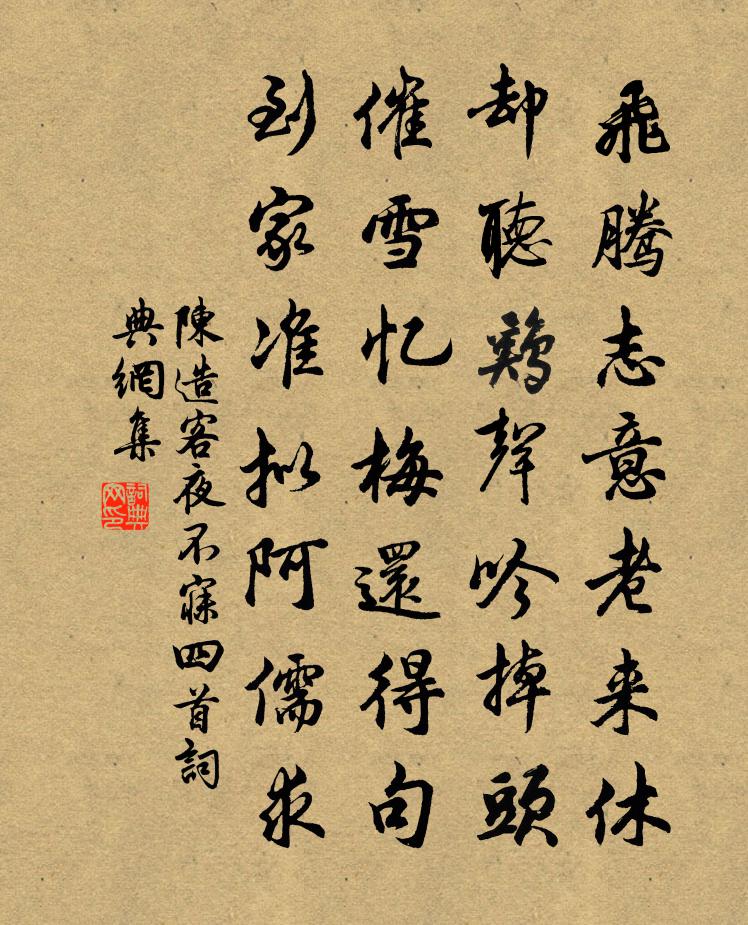 飛騰志意老来休
却聽鷄聲吟掉頭
催雪忆梅還得句
到家准拟阿儒求
陳造客夜不寐四首詞
典網集
詞典
网印